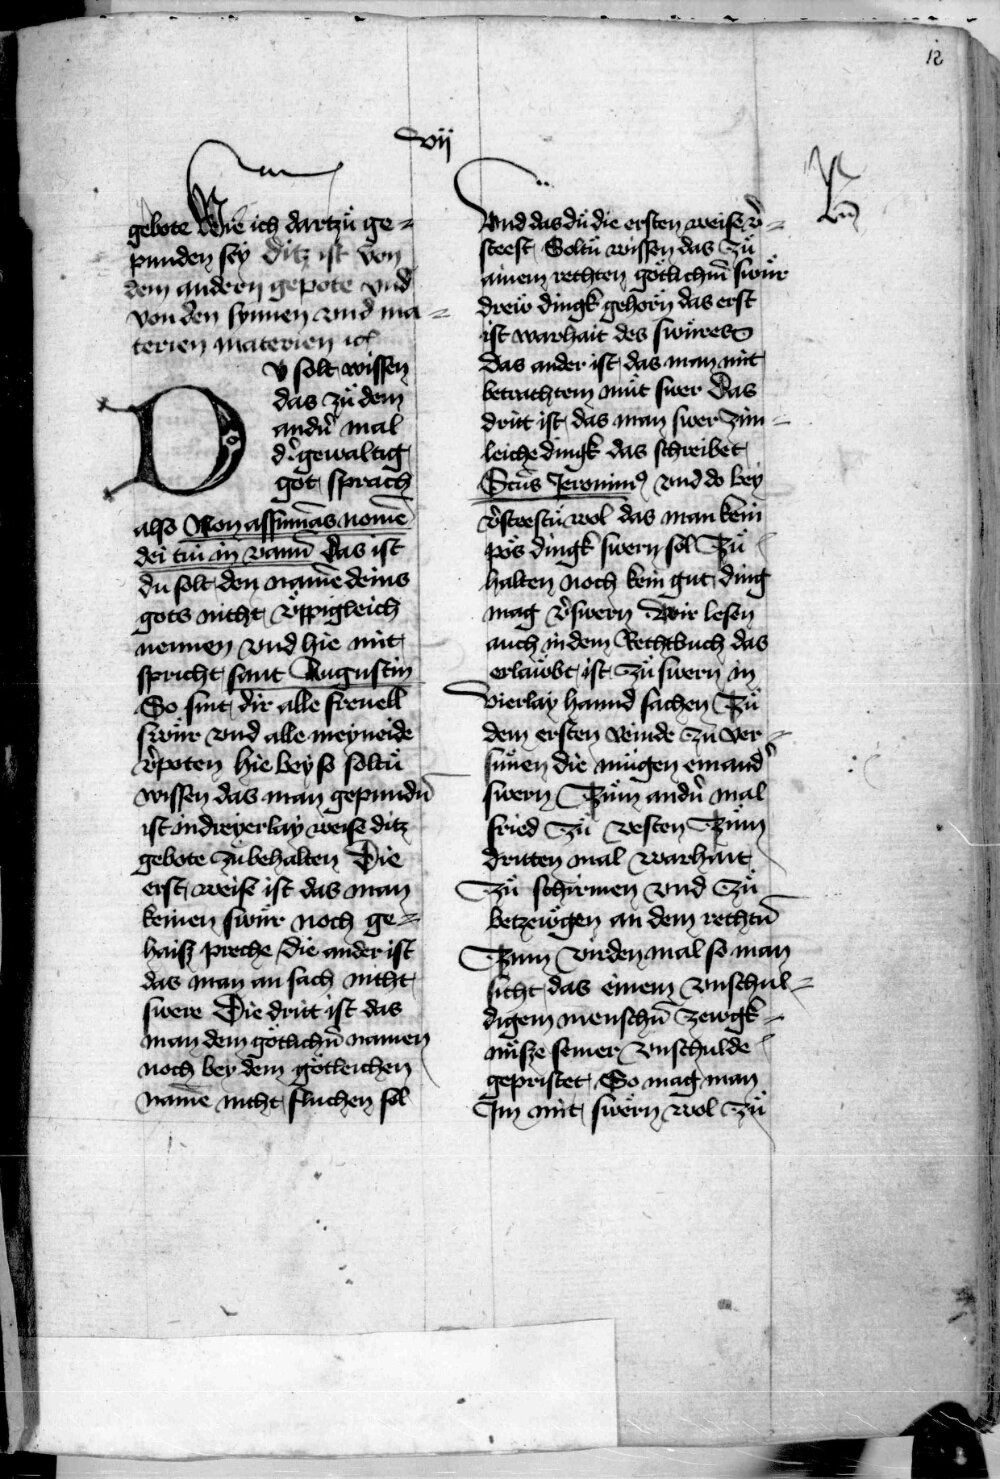 12
vij
gebote Wie ich dartzů ge-
punden sey Ditz ist von
dem andern gepote vnd
von den synnen vnd ma-
terien materien
Du solt wissen
das zů dem
andn̄ mal
dˀ gewaltig
got sprach
also Non assumas nomē
dei tui in vanū Das ist
du solt den namē deins
gots nicht v̈ppigleich
nennen vnd hie mit
spricht sant Augustin
So sint dir alle freuell
swůr vnd alle meyneide
vˀpoten hie bey so soltů
wissen das man gepundn̄
ist in dreyerlay weise ditz
gebote zůbehalten Die
erst weise ist das man
keinen swůr noch ge-
haisz spreche Die ander ist
das man an sach nicht
swere Die dritt ist das
man dem götlichn̄ namen
noch bey dem götleichen
namē nicht fluchen sol
Vnd das dů die ersten weise vˀ-
steest Soltů wissen das zů
ainem rechten götlichm̄ swůr
drew dingk gehorn̄ das erst
ist warhait des swůres
das ander ist das man mit
betrachtem můt swer Das
dritt ist das man swer zim-
leiche dingk das schreibet
Sctūs Jeronimꝰ vnd do bey
vˀsteestu wol das man kein
pös dingk swern sol Zů
halten noch kein gut ding
mag vˀswern Wir lesen
auch in dem Rechtbuch das
erlawbt ist zů swern in
vierlay hannd sachen Zů
dem ersten veinde zů ver-
sůnen die mügen einandˀ
swern Zům andn̄ mal
fried zů vesten Zům
dritten mal warhait
zů schirmen vnd zů
betzewgen an dem rechtn̄
Zum virden mal so man
sicht das einem vnschul-
digem menschn̄ zewgk-
nůsze seiner vnschulde
gepristet So mag man
Im mit swern wol zů